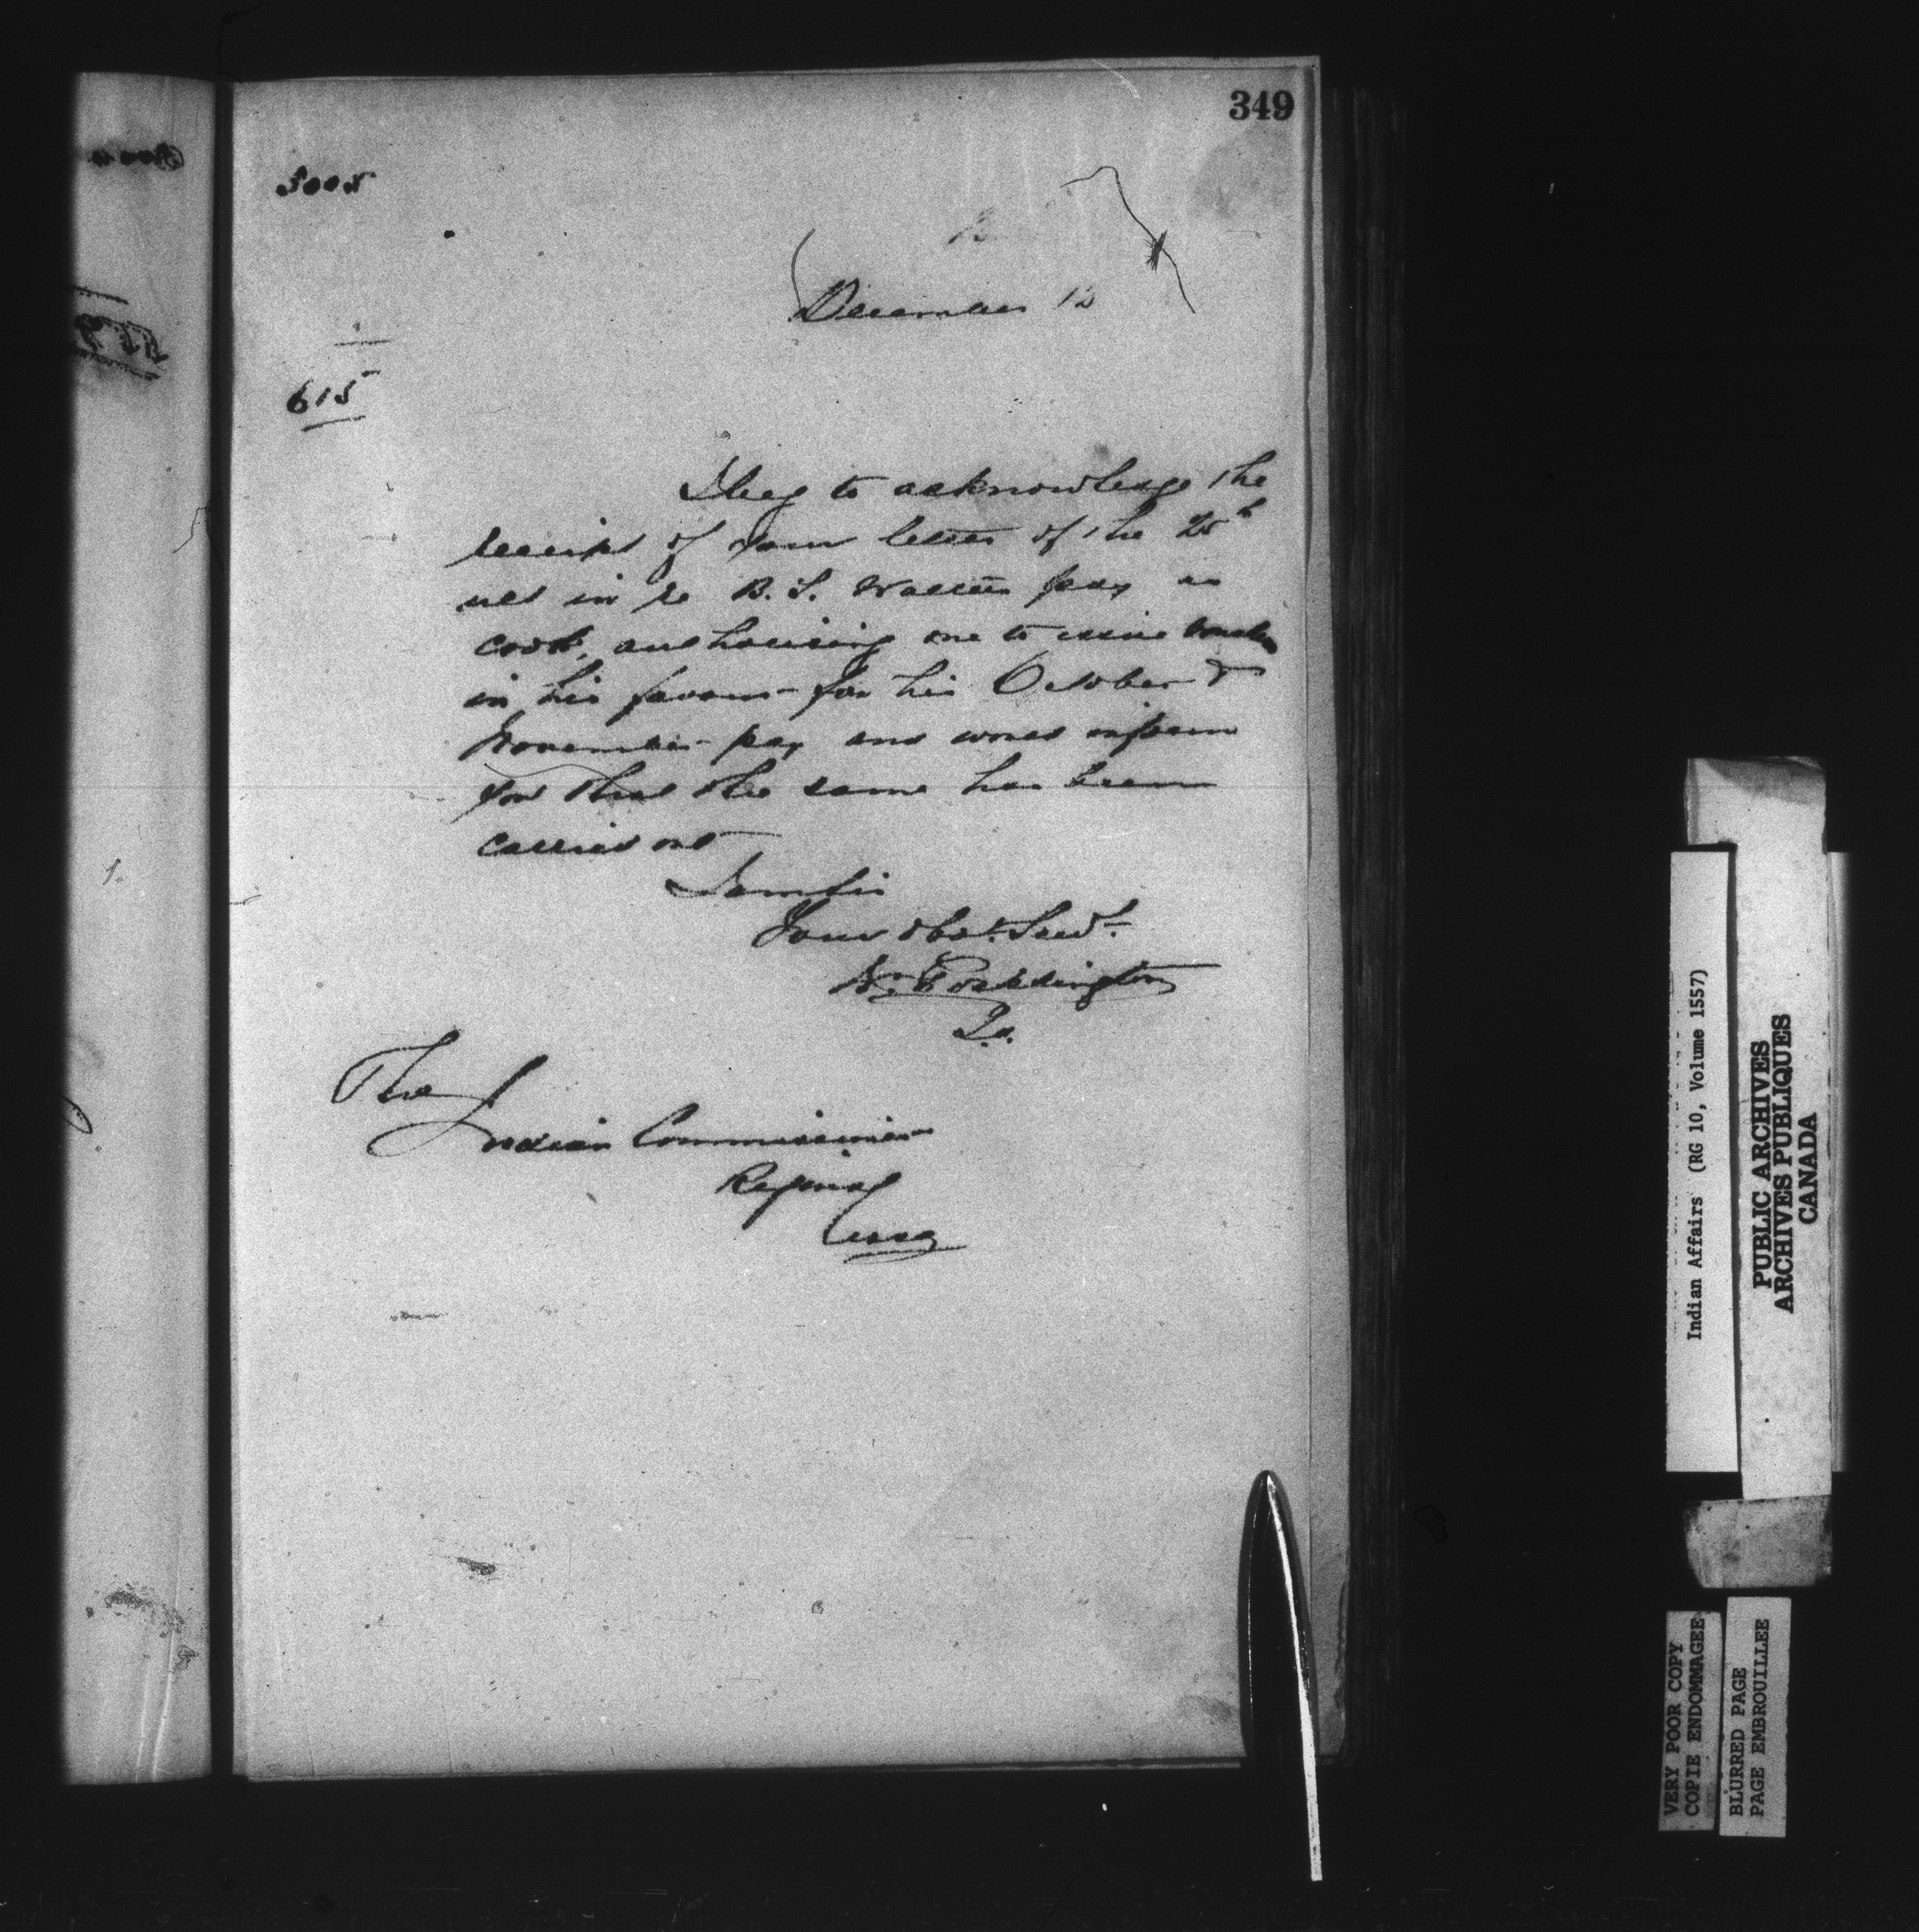 349
5008
December 12
615
I beg to acknowledge the
receipt of your letter of the 25th
ult in re B. S. pay as
cook, authorising me to issue voucher
in his favour for his October &
November pay and would inform
you that the same has been
carried out
I am Sir
Your Obdt. Servt.
W. Pocklington
The
Indian Commissioner
Regina
Assa
Indian Affairs (RG 10, Volume 1557)
PUBLIC ARCHIVES
ARCHIVES PUBLIQUES
CANADA
VERY POOR COPY
COPIE ENDOMMAGEE
BLURRED PAGE
PAGE EMBROUILLEE